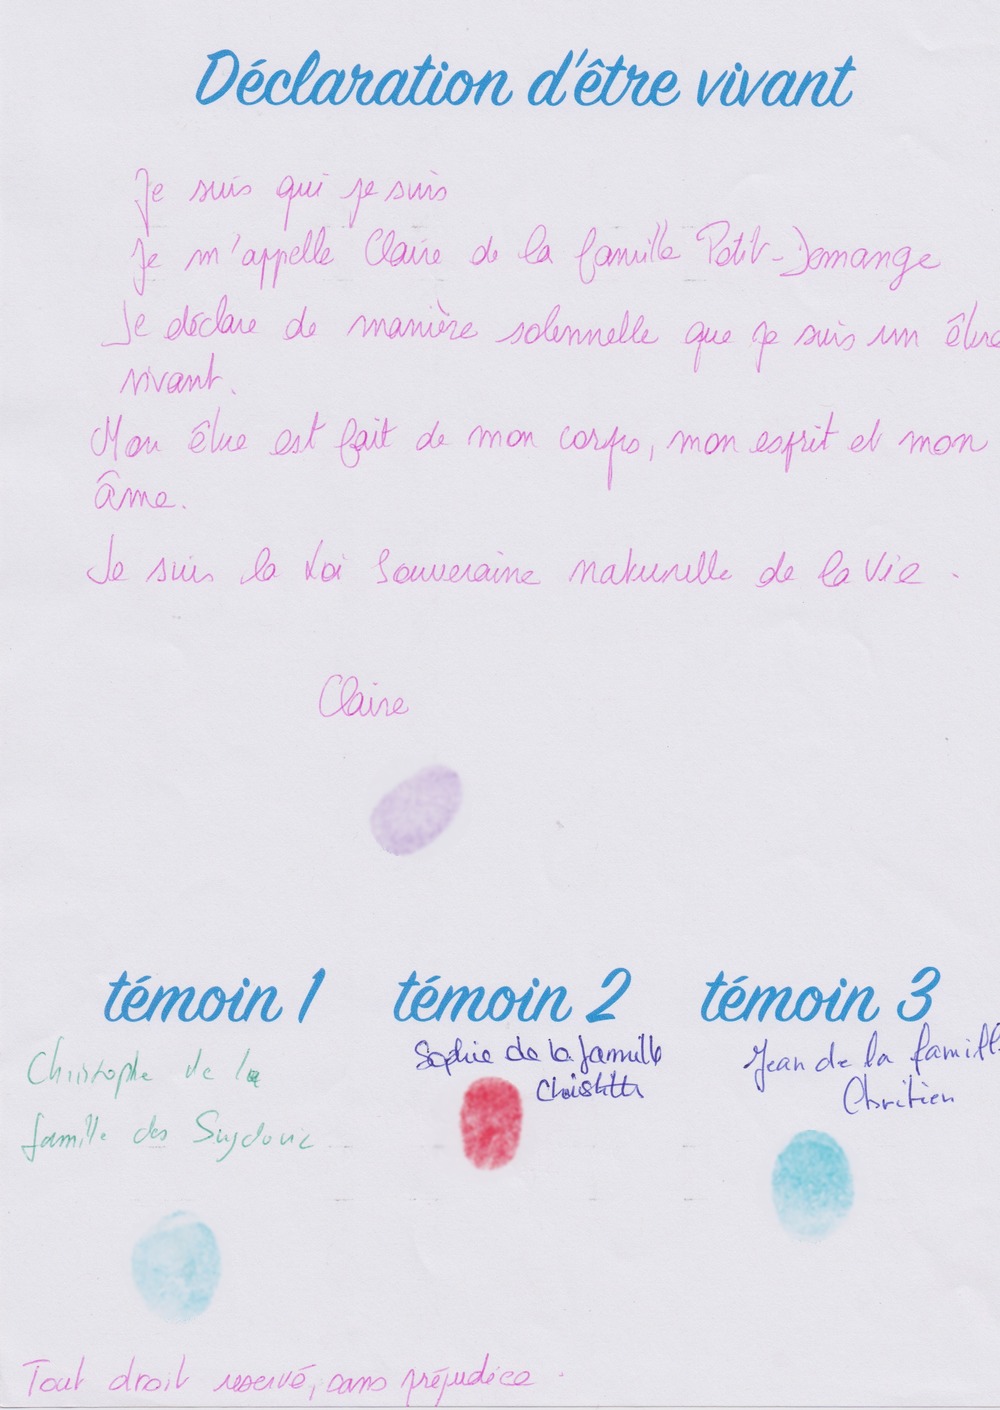 Déclaration d'être vivant
Je suis qui je suis
Je m'appelle Claire de la famille Petit-Demange
Je déclare de manière solennelle que je suis un être
vivant.
Mon être est fait de mon corps, mon esprit et mon
âme.
Je suis la Loi Souveraine naturelle de la Vie.
Claire
témoin 1 témoin 2 témoin 3
Christophe de la
famille des
Sophie de la famille
Jean de la famille
Chritien
Tout droit reservé, sans préjudice.